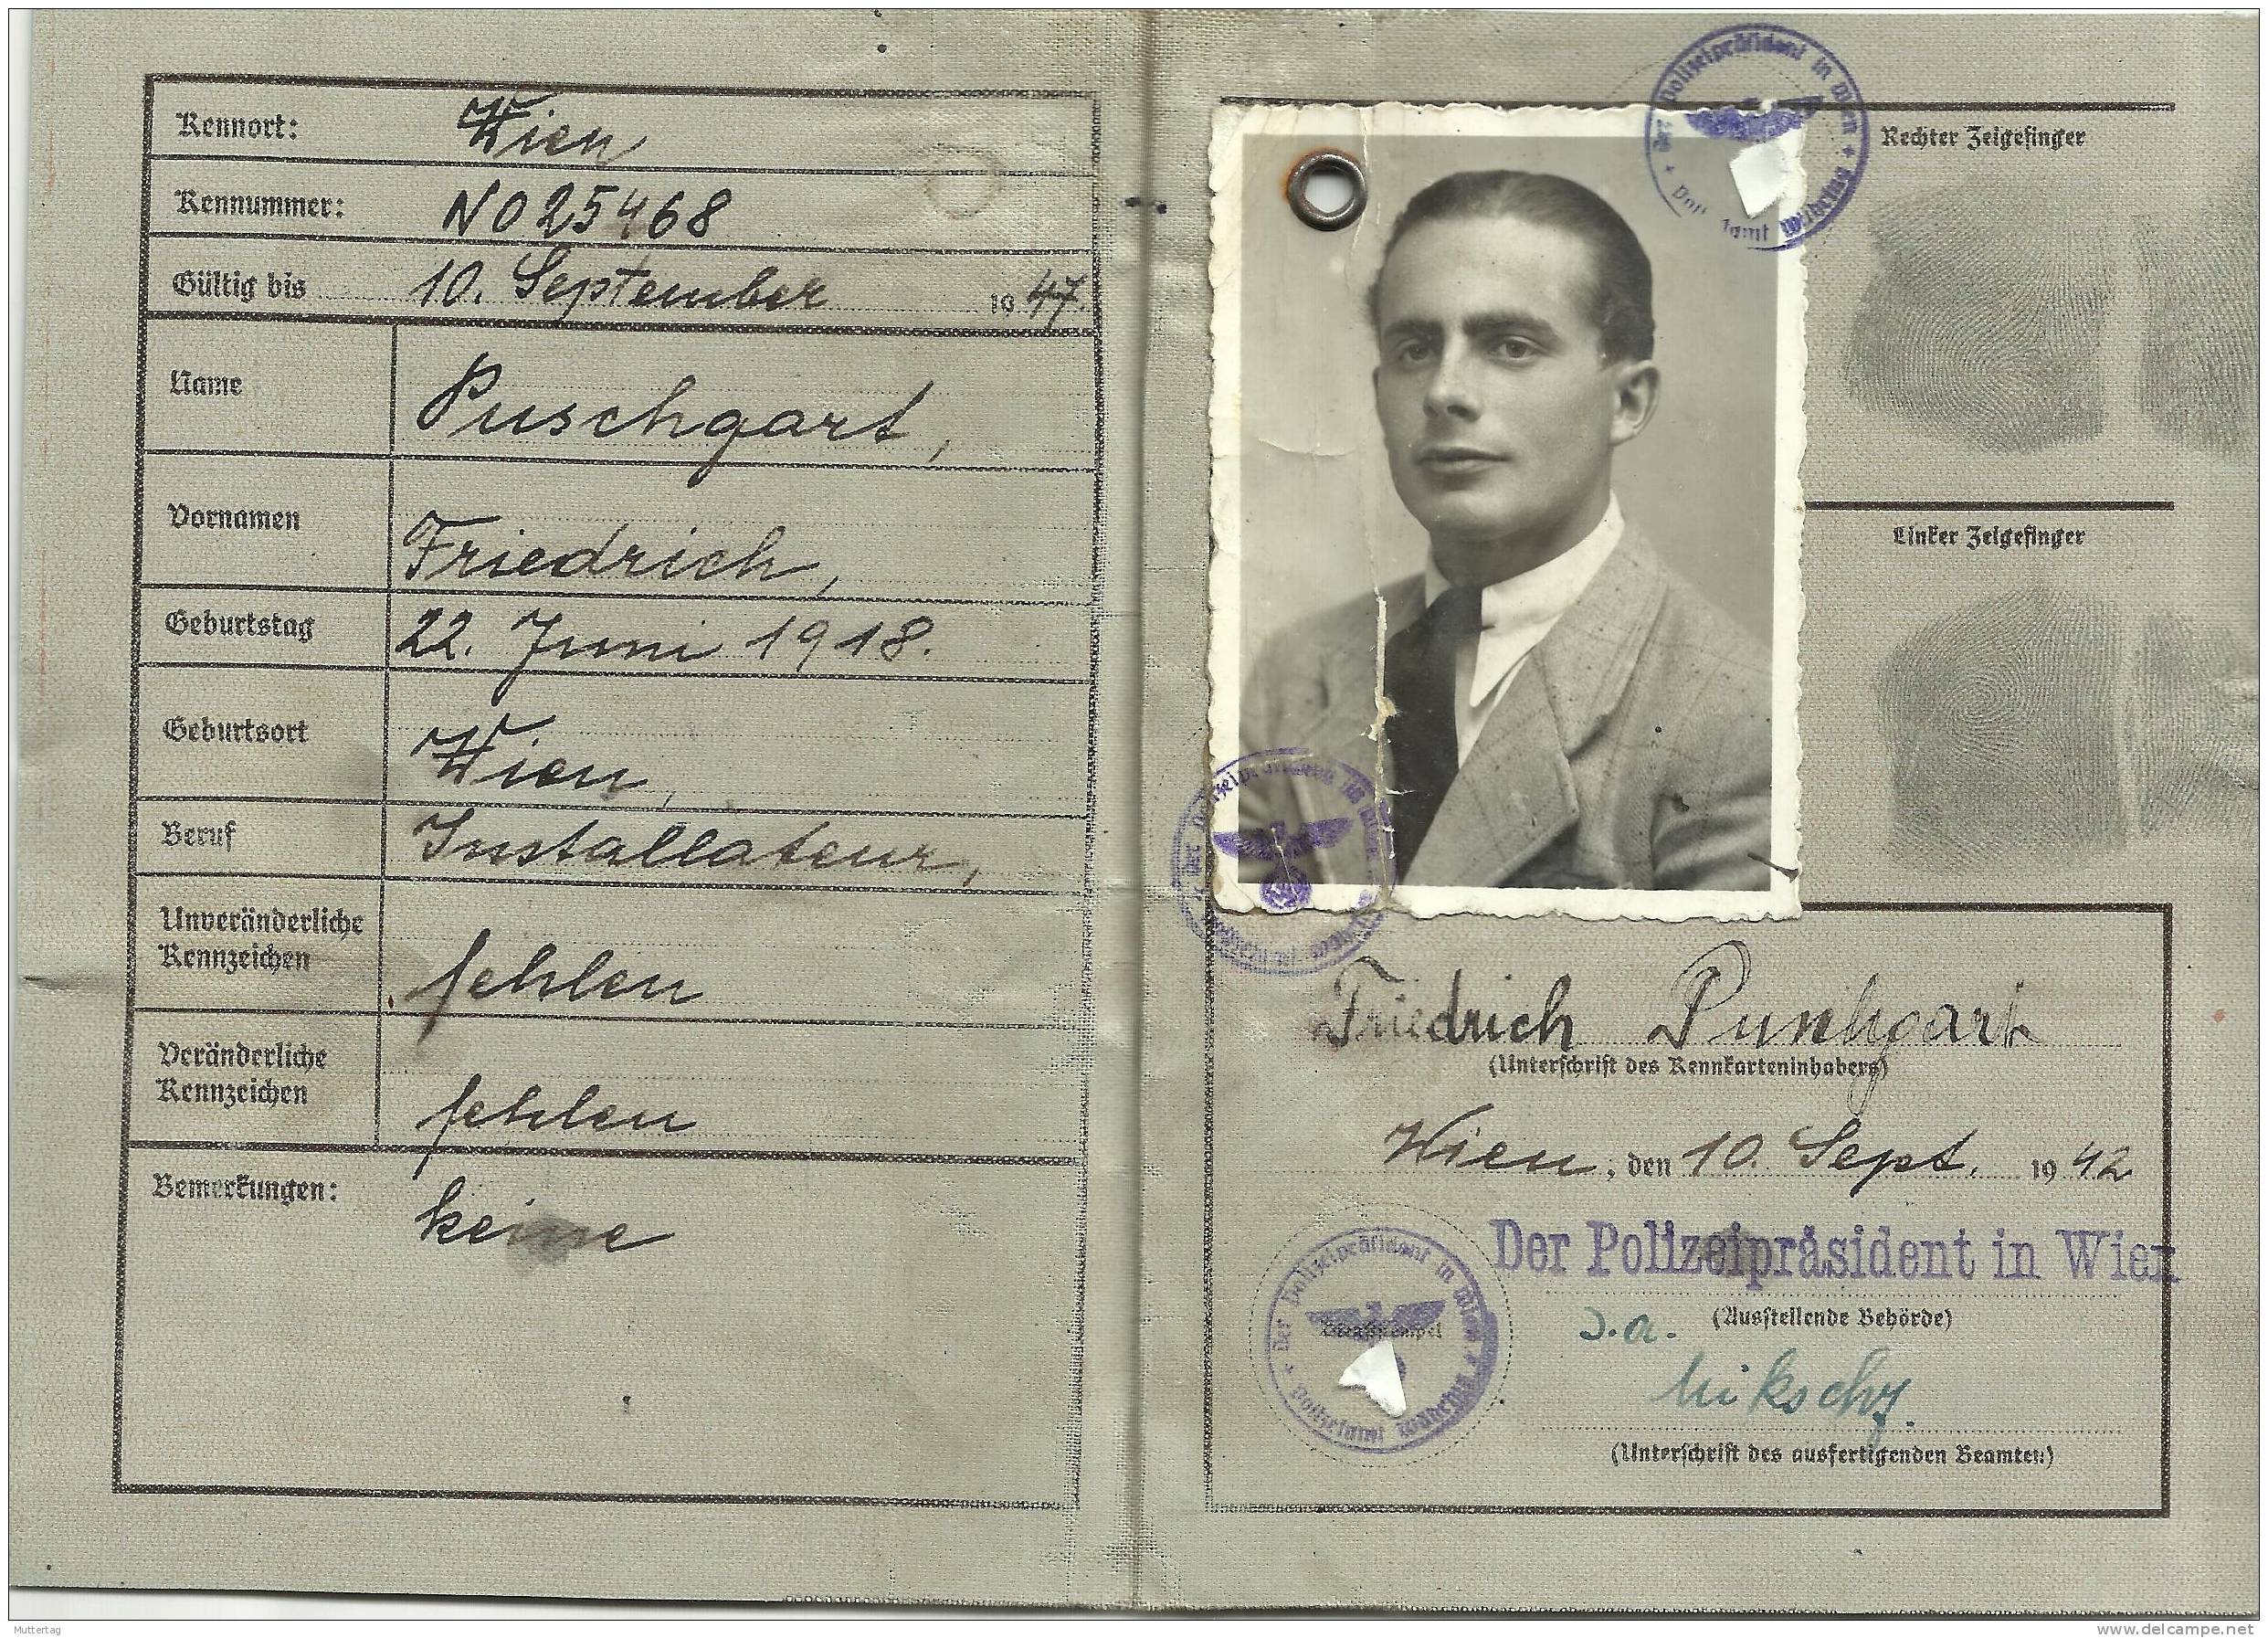 Kennort: Wien
Kennummer: NO25468
Gültig bis 10. September 1947.
Name Puschgart,
Vornamen Friedrich,
Geburtstag 22. Juni 1918.
Geburtsort Wien,
Beruf Installateur,
Unveränderliche
Kennzeichen fehlen
Veränderliche
Kennzeichen fehlen
Bemerkungen: keine
Der Polizeipräsident in Wien
Rechter Zeigefinger
Linker Zeigefinger
Der Polizeipräsident in Wien
Friedrich Puschgart
(Unterschrift des Kennkarteninhabers)
Wien, den 10. Sept. 1942
Der Polizeipräsident in Wien
(Ausstellende Behörde)
Der Polizeipräsident in Wien
Polizeiamt
Dienststempel
J.A.
Mikschy.
(Unterschrift des ausfertigenden Beamten)
Muttertag
delcampe.net